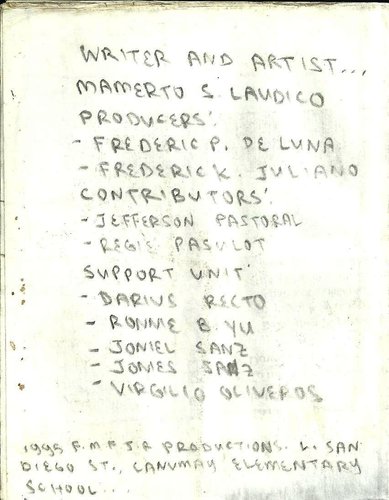 WRITER AND ARTIST...
MAMERTO S. LAUDICO
PRODUCERS:
- FREDERIC P. DE LUNA
- FREDERIC K. JULIANO
CONTRIBUTORS:
- JEFFERSON PASTORAL
- REGIE PASULOT
SUPPORT UNIT
- DARIUS RECTO
- RONNIE B. YU
- JONIEL SANZ
- JOMES SANZ
- VIRGILIO OLIVEROS
1995 F.M.F.J.R PRODUCTIONS. L. SAN
DIEGO ST., CANUMAY ELEMENTARY
SCHOOL...